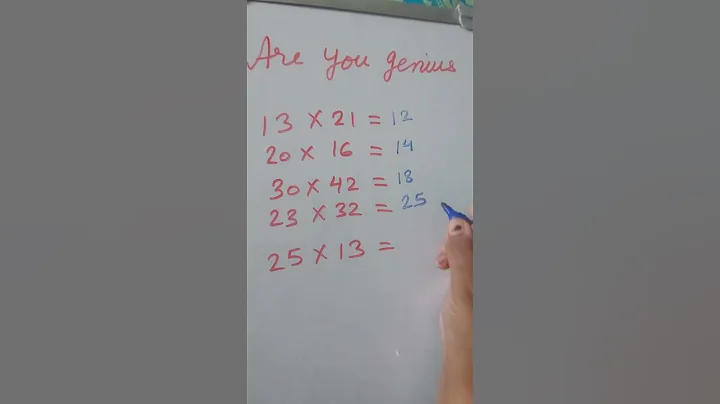 Are you genius
13 × 21 = 12
20 × 16 = 14
30 × 42 = 18
23 × 32 = 25
25 × 13 =